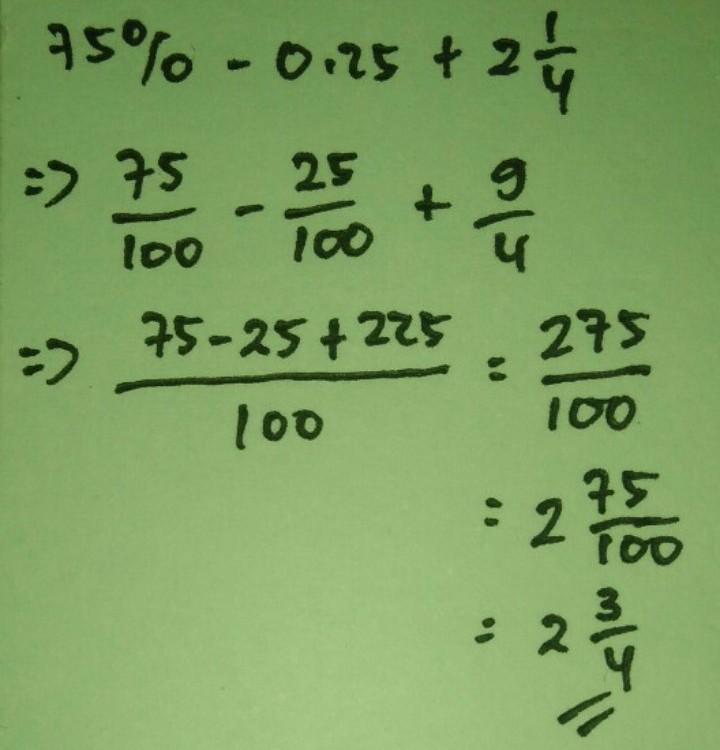 75% - 0.25 + 2 1/4
=> 75/100 - 25/100 + 9/4
=> (75-25+225)/100 = 275/100
= 2 75/100
= 2 3/4